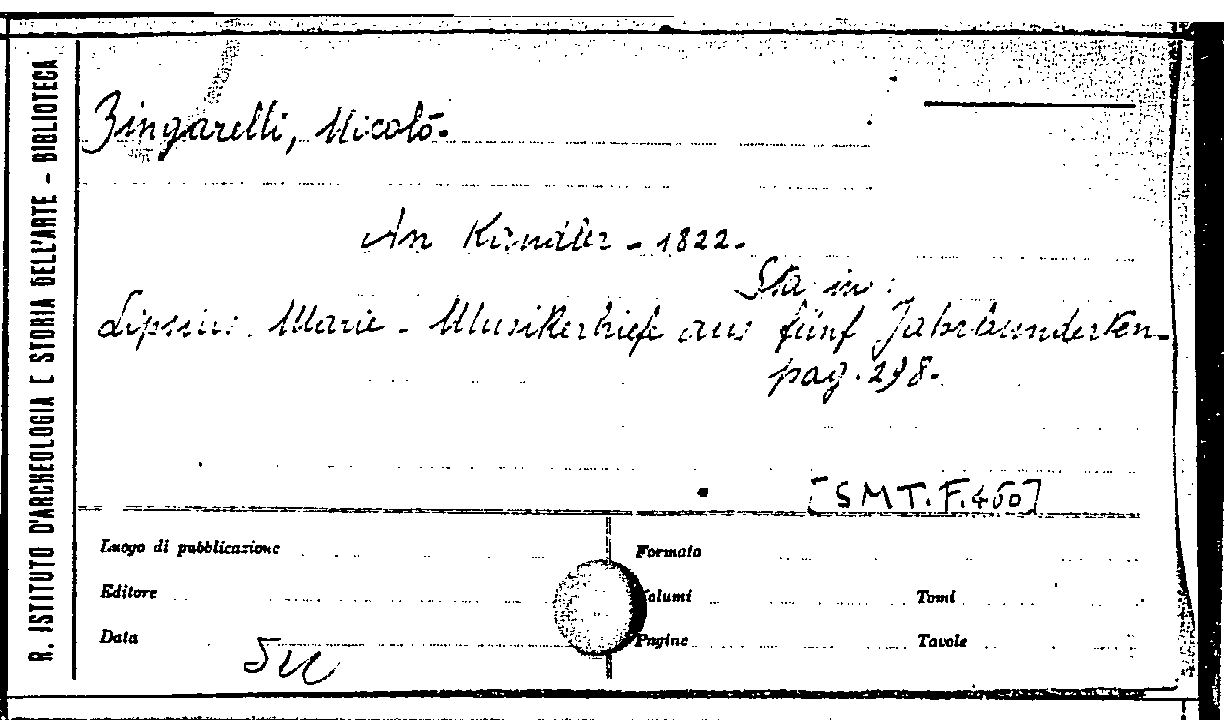 R. ISTITUTO D'ARCHEOLOGIA E STORIA DELL'ARTE - BIBLIOTECA
Zingarelli, Nicolò.
An Kandler - 1822.
Sta in:
Lipsius Marie - Musikerbriefe aus fünf Jahrhunderten -
pag. 298.
[SMT. F. 460]
Luogo di pubblicazione
Formato
Editore
Volumi
Tomi
Data
Pagine
Tavole